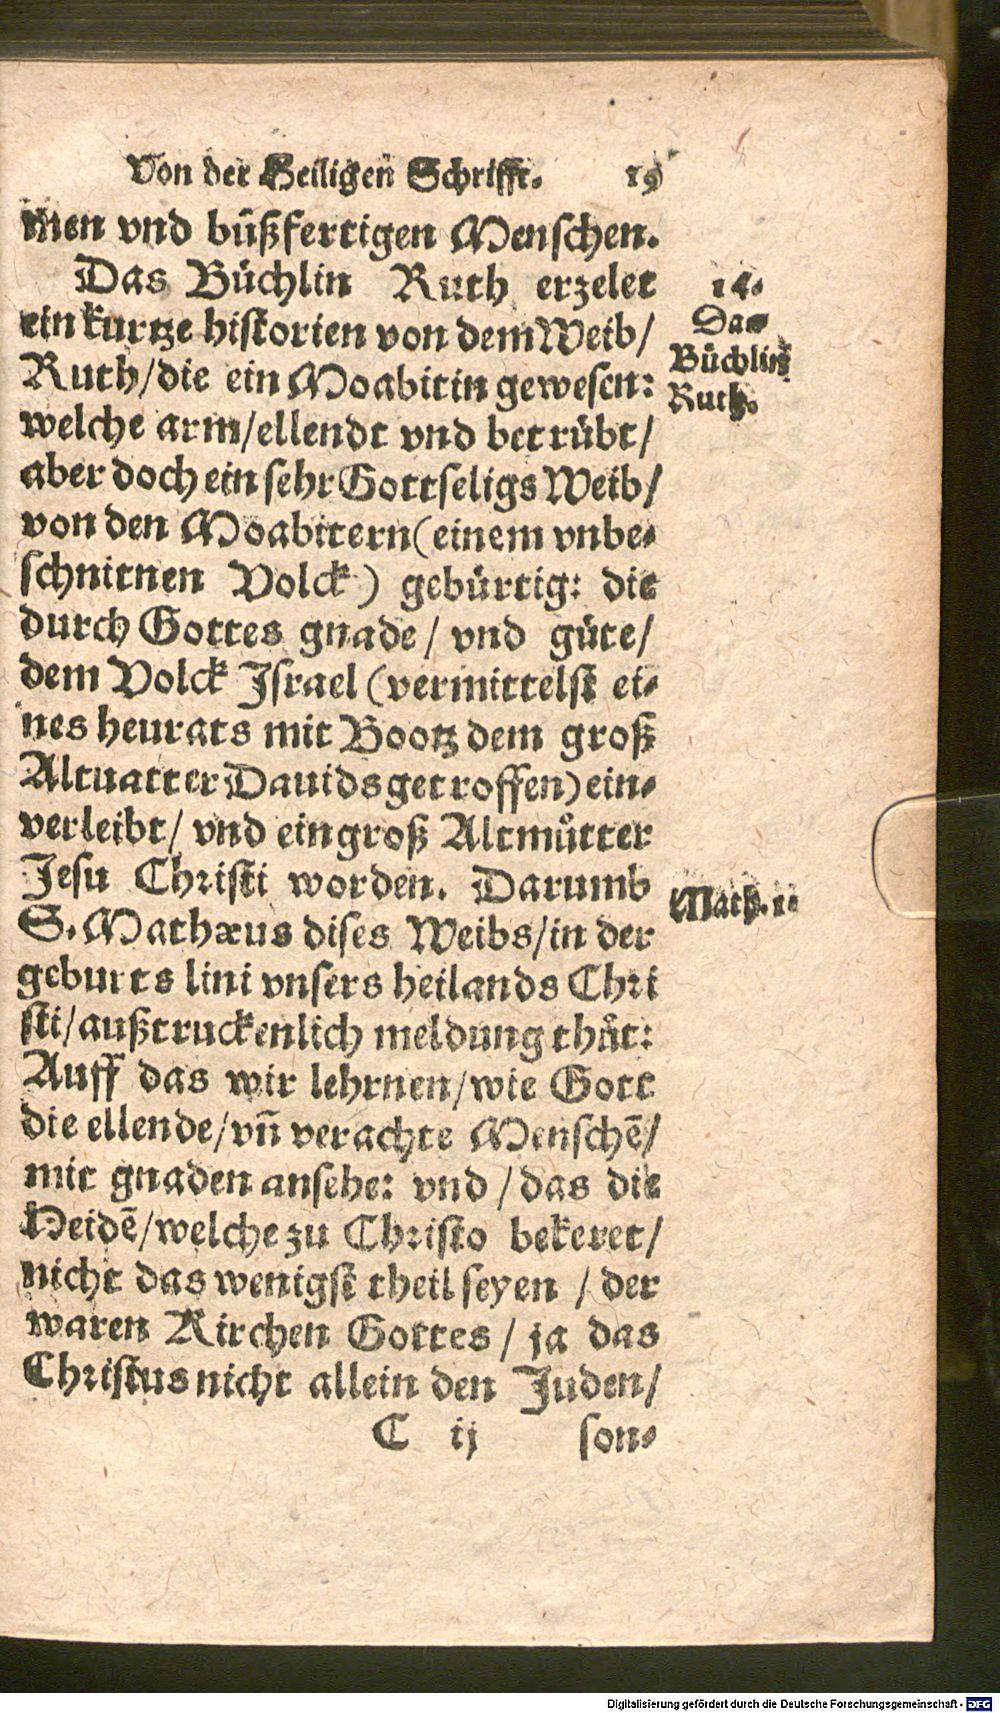 Von der Heiligen Schrifft. 19
men vnd bůßfertigen Menschen.
Das Büchlin Ruth erzelet
ein kurtze historien von dem Weib/
Ruth/die ein Moabitin gewesen:
welche arm/ellendt vnd betrübt/
aber doch ein sehr Gottseligs Weib/
von den Moabitern (einem vnbe-
schnitnen Volck) gebürtig: die
durch Gottes gnade / vnd güte/
dem Volck Israel (vermittelst ei-
nes heurats mit Bootz dem groß
Altuatter Dauids getroffen) ein-
verleibt/ vnd ein groß Altmůtter
Jesu Christi worden. Darumb
S. Mathæus dises Weibs/in der
geburts lini vnsers heilands Chri
sti/außtruckenlich meldung thůt:
Auff das wir lehrnen/wie Gott
die ellende/vñ verachte Menschẽ/
mit gnaden ansehe: vnd / das die
Heidẽ/welche zu Christo bekeret/
nicht das wenigst theil seyen / der
waren Kirchen Gottes / ja das
Christus nicht allein den Juden/
C ij son-
14.
Das
Büchlin
Ruth.
Math. 1.
Digitalisierung gefördert durch die Deutsche Forschungsgemeinschaft - DFG